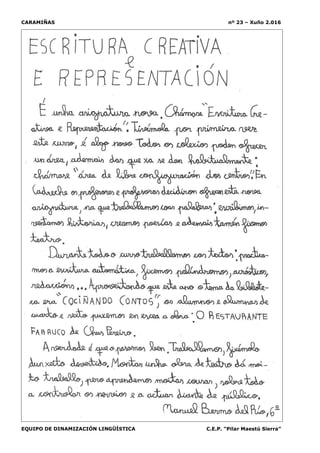 CARAMIÑAS nº 23 – Xuño 2.016
ESCRITURA CREATIVA
e
E REPRESENTACIÓN
É unha asignatura nova. Chámase "Escritura Cre-
ativa e Representación". Tivémola por primeira vez
este curso, é algo novo. Todos os colexios poden ofrecer
un área, ademais das que xa se dan habitualmente:
chámase "área de libre configuración dos centros". En
Cadreche os profesores e profesoras decidiron ofrecer esta nova
asignatura, na que traballamos coas palabras: escribimos, in-
ventamos historias, creamos poesías e ademais tamén fixemos
teatro.
Durante todo o curso traballamos con textos: practica-
mos a escritura automática, fixemos palíndromos, acrósticos,
redaccións... Aproveitando que este ano o tema da bibliote-
ca era "COCIÑANDO CONTOS", os alumnos e alumnas de
cuarto e sexto puxemos en escea a obra: O RESTAURANTE
FARRUCO de Chus Pereiro.
A verdade é que o pasamos ben. Traballamos, fixémolo
dun xeito divertido. Montar unha obra de teatro dá moi-
to traballo, pero aprendemos moitas cousas, sobre todo
a controlar os nervios e a actuar diante de público.
Manuel Bermo del Río, 6º
EQUIPO DE DINAMIZACIÓN LINGÜÍSTICA C.E.P. "Pilar Maestú Sierra"